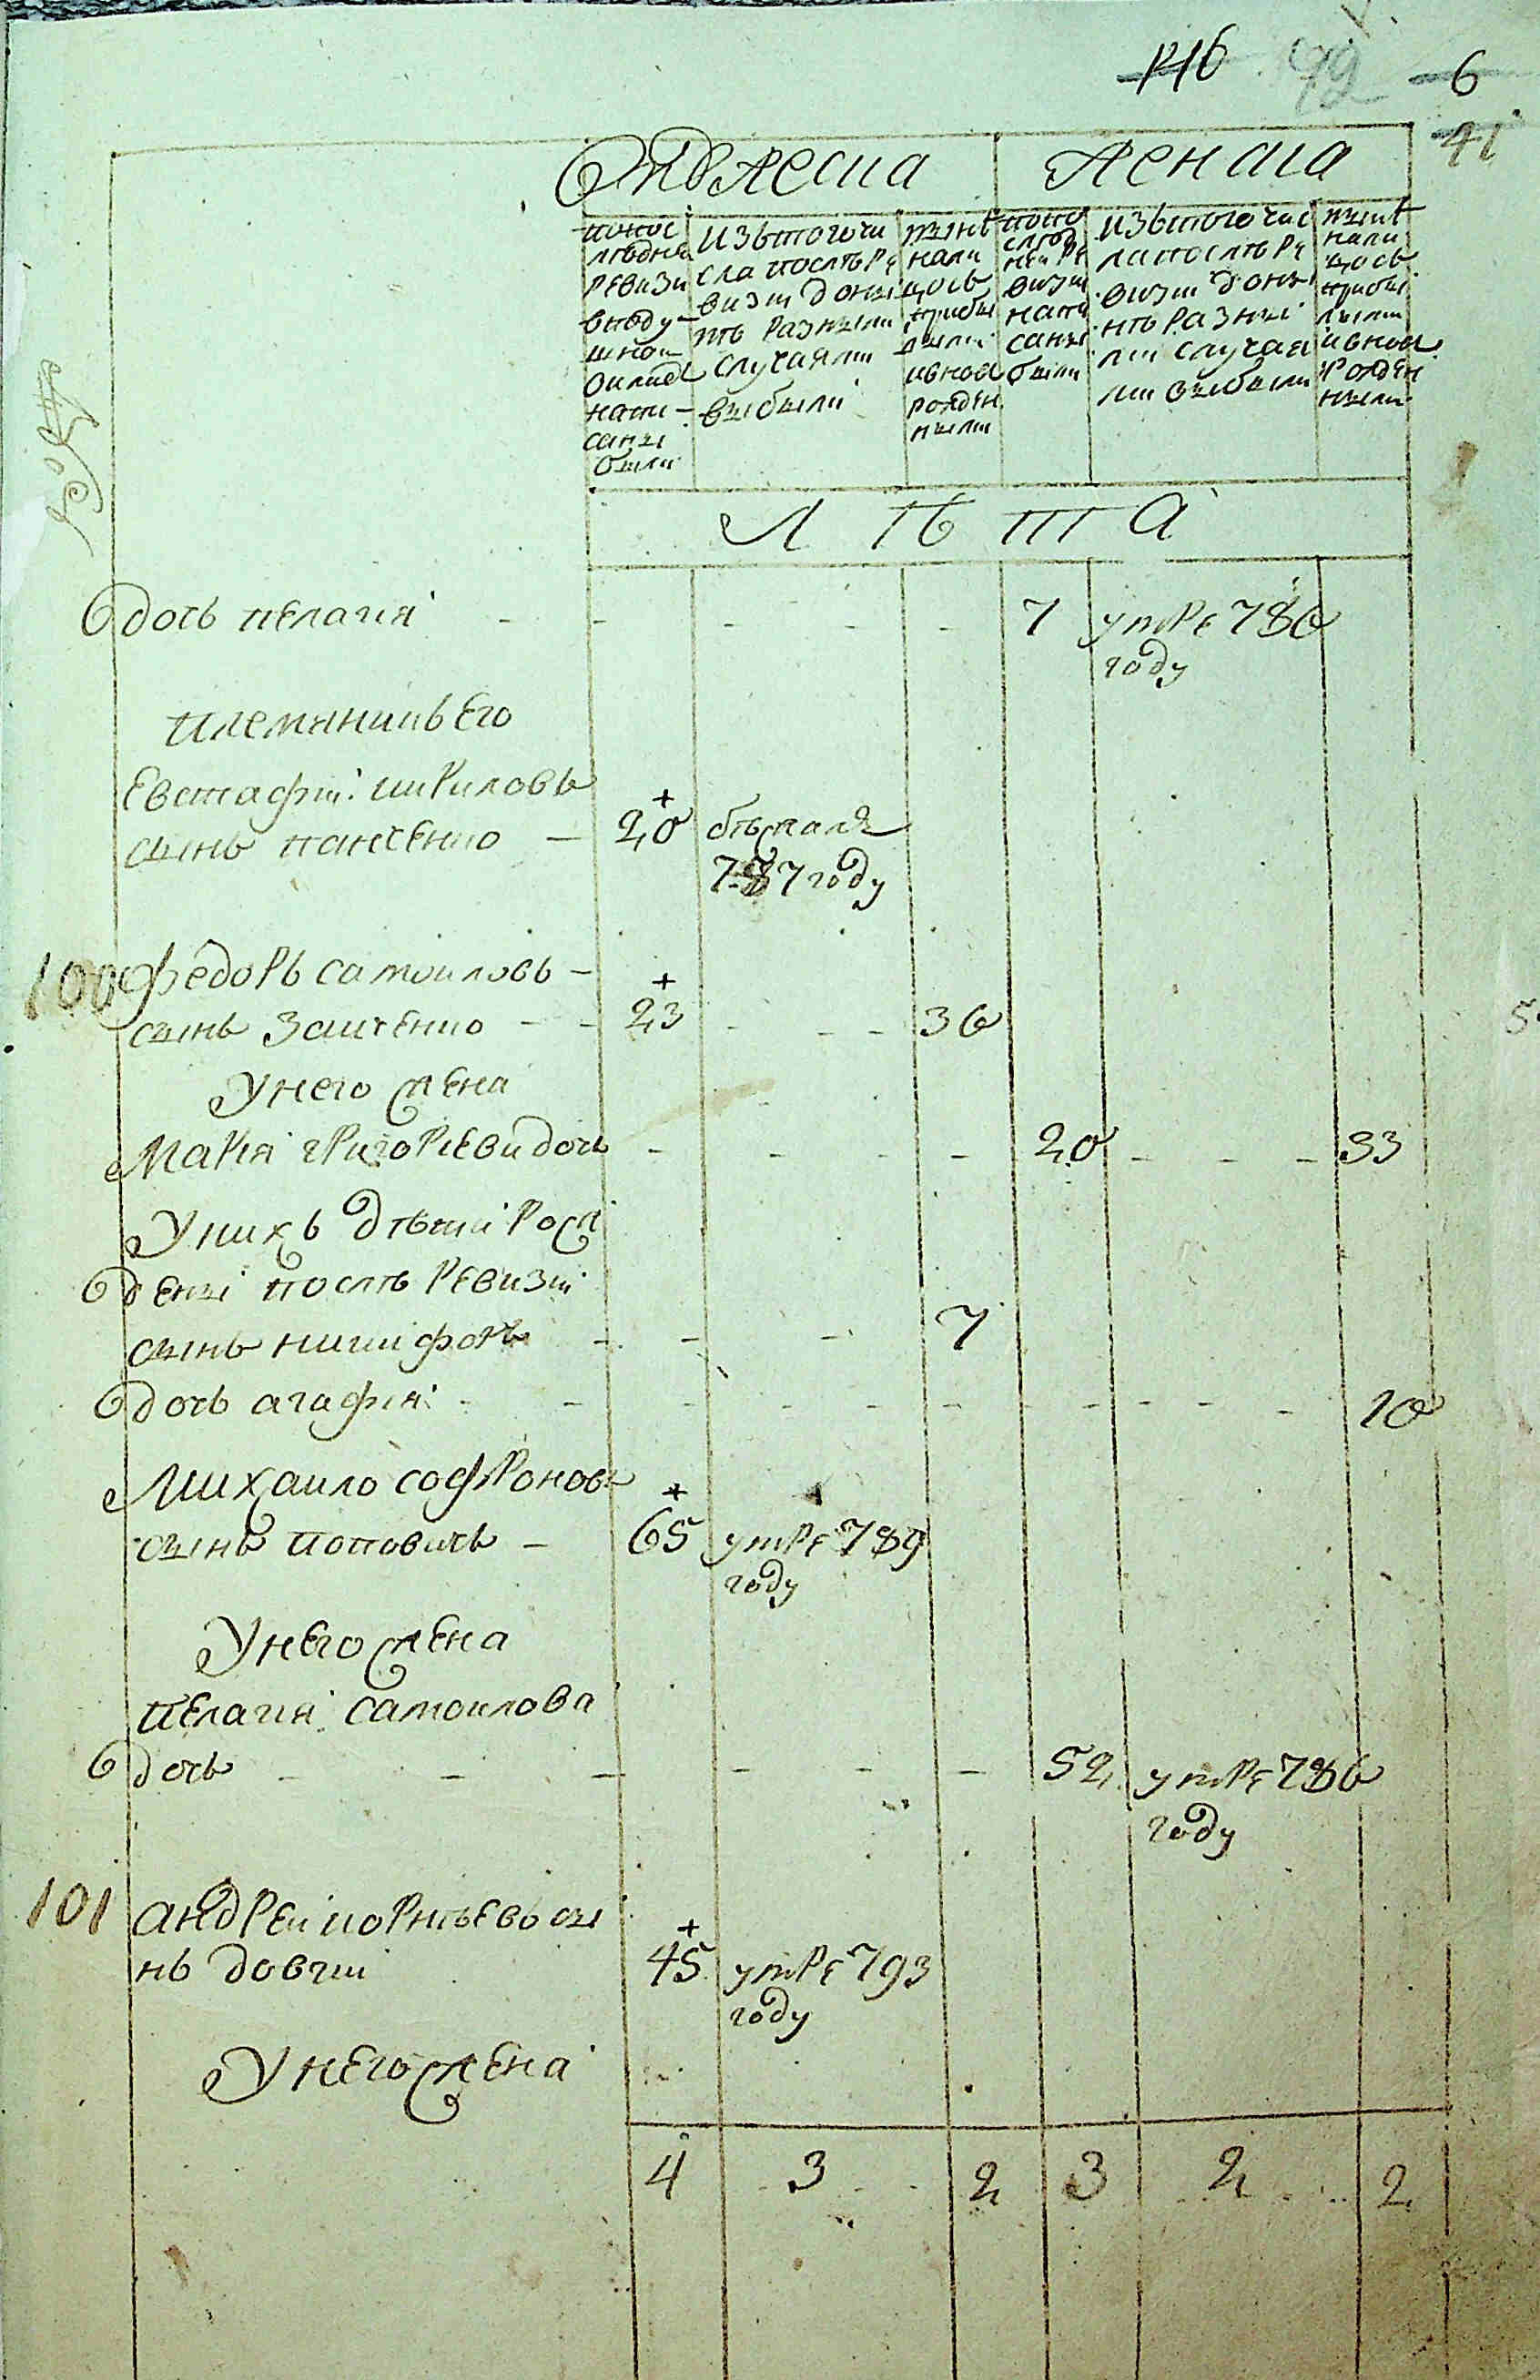 146 42 6
41
Мужеска Женска
попос
ледней
ревизи
вподу-
шной
окладъ
напи-
саны
были
изътогочи
сла послѣре
визіи доны
нѣ разными
случаями
выбыли
нынѣ
нали
цось
прибы
лыми
ивново
рожден
ными
попо
слѣд
ней ре
визіи
напи
саны
были
изътогочис
лапослѣре
визіи доны
нѣ разны
ми случая
ми выбыли
нынѣ
нали
цось
прибы
лыми
ивново
рожден
ными
Лѣта
дочь пелагия - - - - - 7 умре 786
году
племяникъ его
Евстафій кириловъ
сынъ панченко - 20 бѣжалъ
787 году
100 Федоръ самойловъ -
сынъ заиченко - - 23 - - - 36
Унего жена
Мария григориева дочь - - - - 20 - - - 33
Унихъ дѣти рож
дены послѣ ревизіи
сынъ никифоръ - - - 7
дочь агафия - - - - - - - - - - 10
Михаило софроновъ
сынъ поповичъ - 65 умре 789
году
Унего жена
пелагия самоилова
дочь - - - - - 52 умре 786
году
101 андрей корнѣевъ сы
нъ довгий 45 умре 793
году
Унего жена
4 3 2 3 2 2